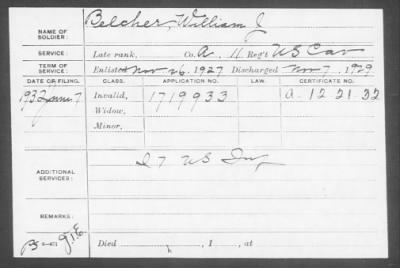 NAME OF SOLDIER: Belcher, William J
SERVICE: Late rank, Co. A, 11 Reg't US Cav
TERM OF SERVICE: Enlisted Nov 26, 1927 Discharged Nov 7, 1929
DATE OF FILING. CLASS. APPLICATION NO. LAW. CERTIFICATE NO.
1932 7 Invalid, 1719933 A-12-21-32
Widow,
Minor,
ADDITIONAL SERVICES: US Inf
REMARKS:
Died , 1 , at